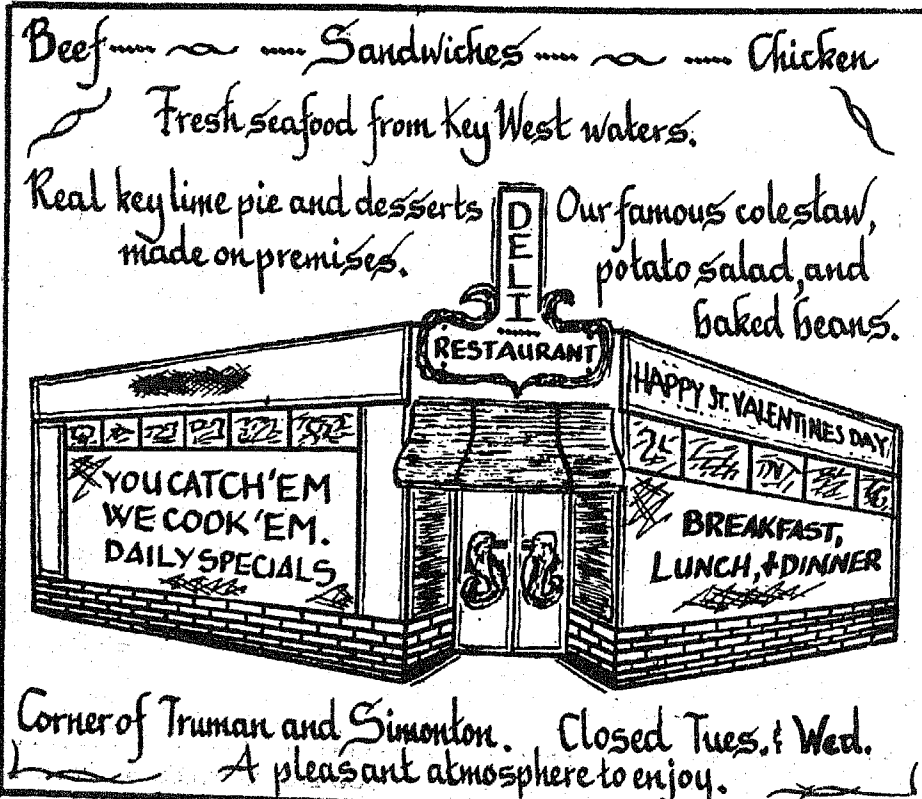 Beef Sandwiches Chicken
Fresh seafood from Key West waters.
Real key lime pie and desserts
made on premises.
Our famous coleslaw,
potato salad, and
baked beans.
DELI
RESTAURANT
HAPPY ST. VALENTINES DAY
YOU CATCH 'EM
WE COOK 'EM.
DAILY SPECIALS
BREAKFAST,
LUNCH, & DINNER
Corner of Truman and Simonton. Closed Tues. & Wed.
A pleasant atmosphere to enjoy.